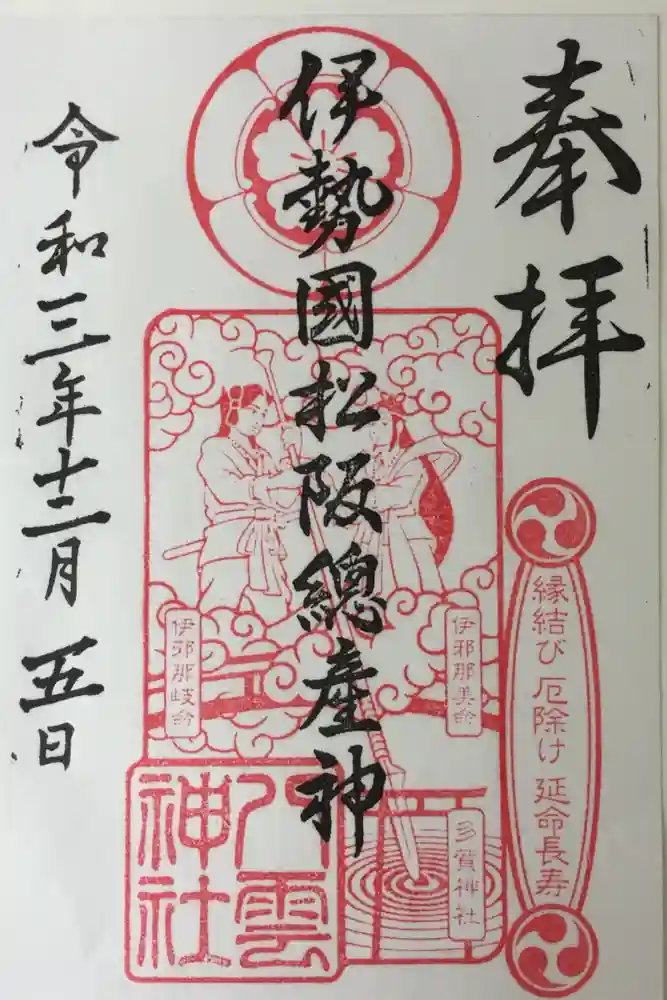 奉拝
縁結び 厄除け 延命長寿
伊勢國松阪總産神
伊邪那美命
伊邪那岐命
多賀神社
八雲
神社
令和三年十二月 五日